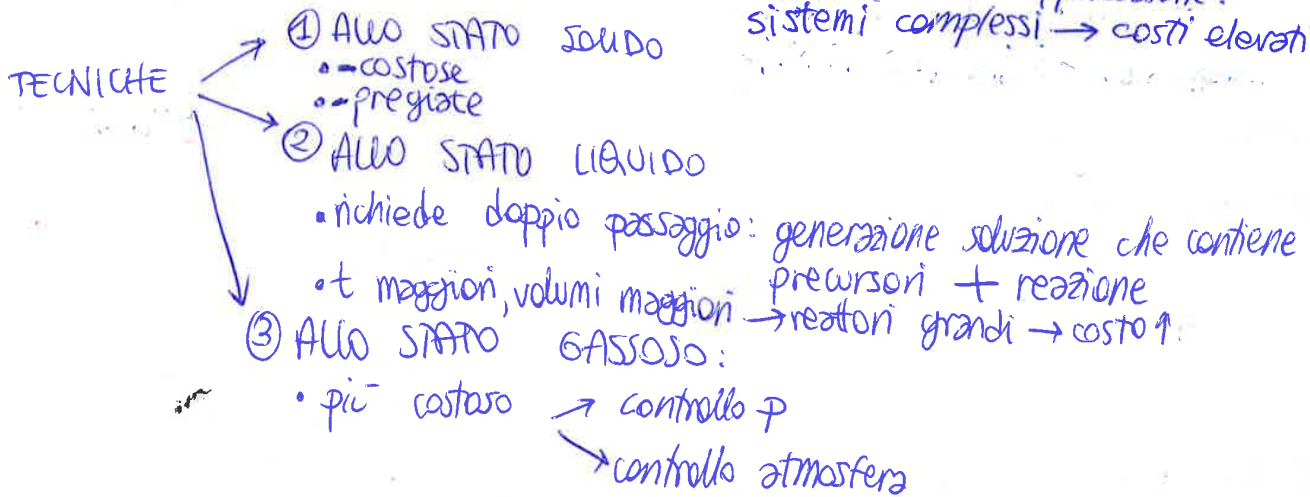 sistemi complessi → costi elevati
TECNICHE
① ALLO STATO SOLIDO
•-costose
•-pregiate
② ALLO STATO LIQUIDO
• richiede doppio passaggio: generazione soluzione che contiene
precursori + reazione
• t maggiori, volumi maggiori → reattori grandi → costo ↑.
③ ALLO STATO GASSOSO:
• più costoso → controllo P
→ controllo atmosfera